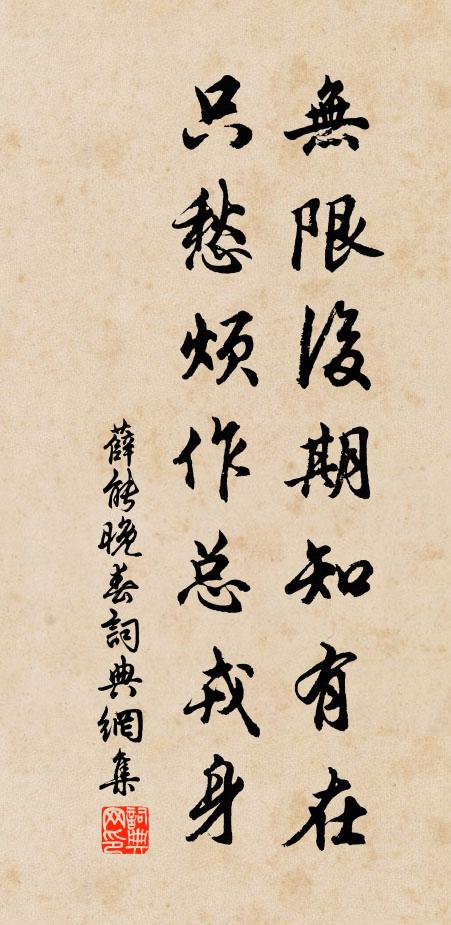 無限後期知有在
只愁煩作總戎身
薛能晚春詞典網集
詞典网印